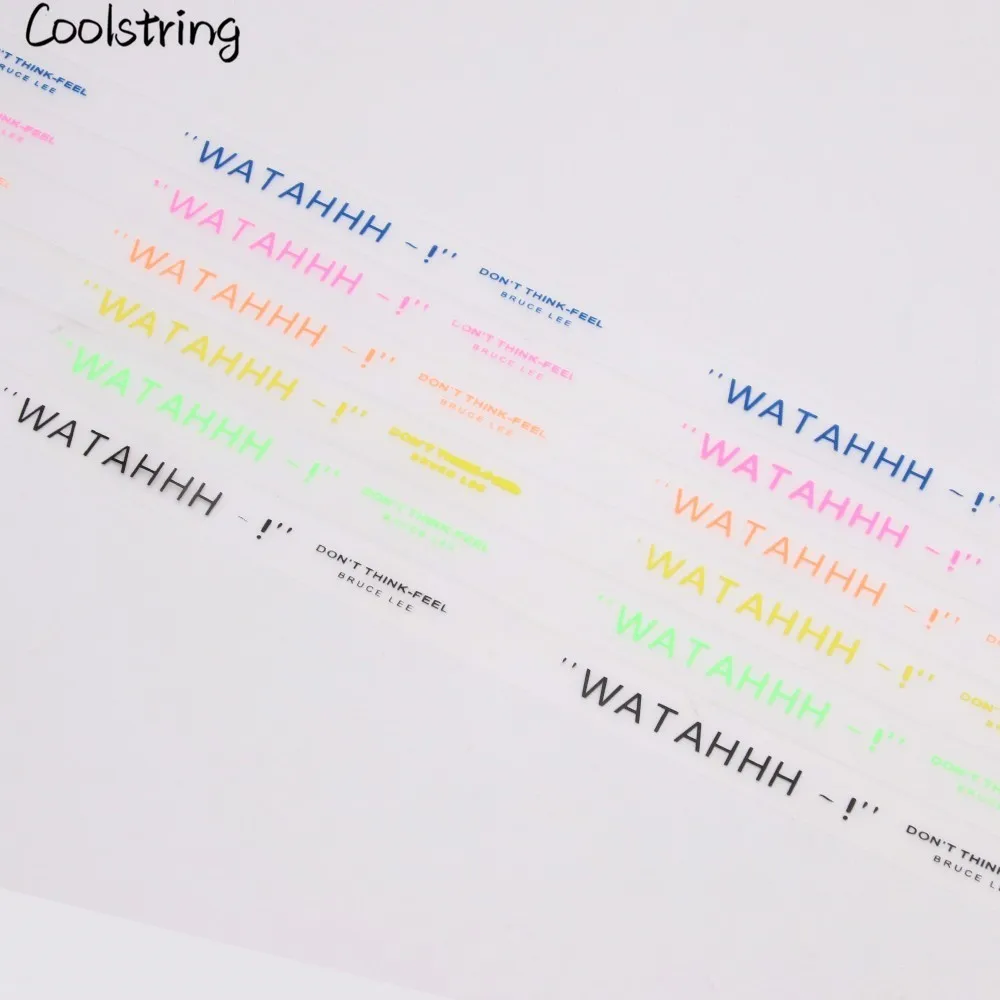 Coolstring
'T THINK-FEEL
RUCE LEE
''WATAHHH ~!''
DON'T THINK-FEEL
BRUCE LEE
''WATAHHH ~!''
NK-FEEL
LEE
''WATAHHH ~!''
DON'T THINK-FEEL
BRUCE LEE
''WATAHHH ~!''
EL
''WATAHHH ~!''
DON'T THINK-FEEL
BRUCE LEE
''WATAHHH ~!''
''WATAHHH ~!''
DON'T THINK-FEEL
BRUCE LEE
''WATAHHH ~!''
DON'
''WATAHHH ~!''
DON'T THINK-FEEL
BRUCE LEE
''WATAHHH ~!''
DON'T TH
BRUC
''WATAHHH ~!''
DON'T THINK-FEEL
BRUCE LEE
''WATAHHH ~!''
DON'T THIN
BRUCE LE